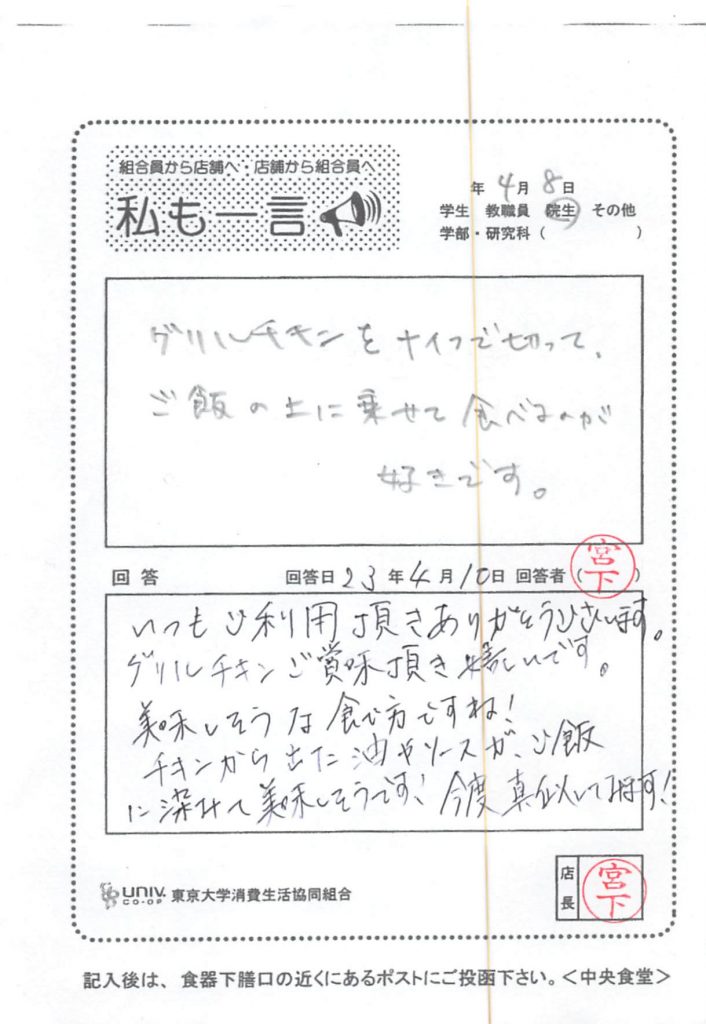 組合員から店舗へ・店舗から組合員へ
私も一言
年 4月 8日
学生 教職員 院生 その他
学部・研究科( )
グリルチキンをナイフで切って、
ご飯の上に乗せて食べるのが
好きです。
回答 回答日 23年 4月 10日 回答者(宮下)
いつもご利用頂きありがとうございます。
グリルチキンご賞味頂き嬉しいです。
美味しそうな食べ方ですね!
チキンから出た油やソースが、ご飯
に染みて美味しそうです!今度真似してみます!
UNIV. CO-OP 東京大学消費生活協同組合
店長 宮下
記入後は、食器下膳口の近くにあるポストにご投函下さい。<中央食堂>